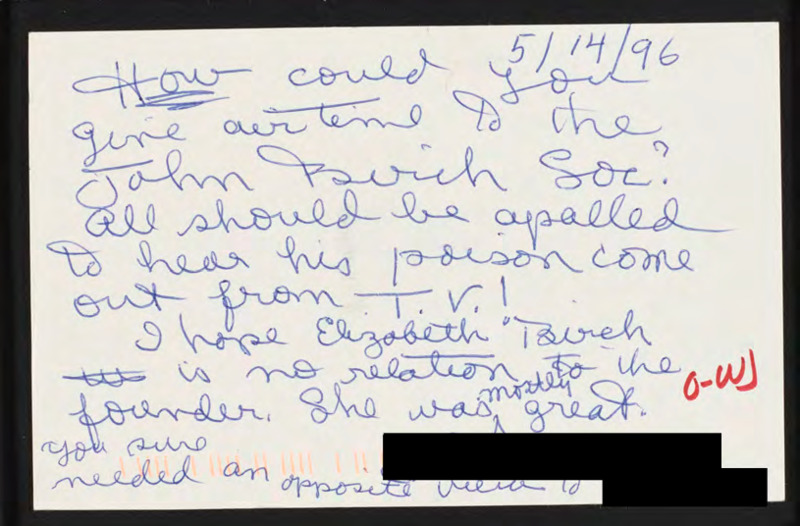 5/14/96
How could you
give air time to the
John Birch Soc.?
All should be apalled
to hear his poison come
out from T.V.!
I hope Elizabeth Birch
is no relation to the
founder. She was mostly great.
O-WJ
you sure
needed an opposite view to